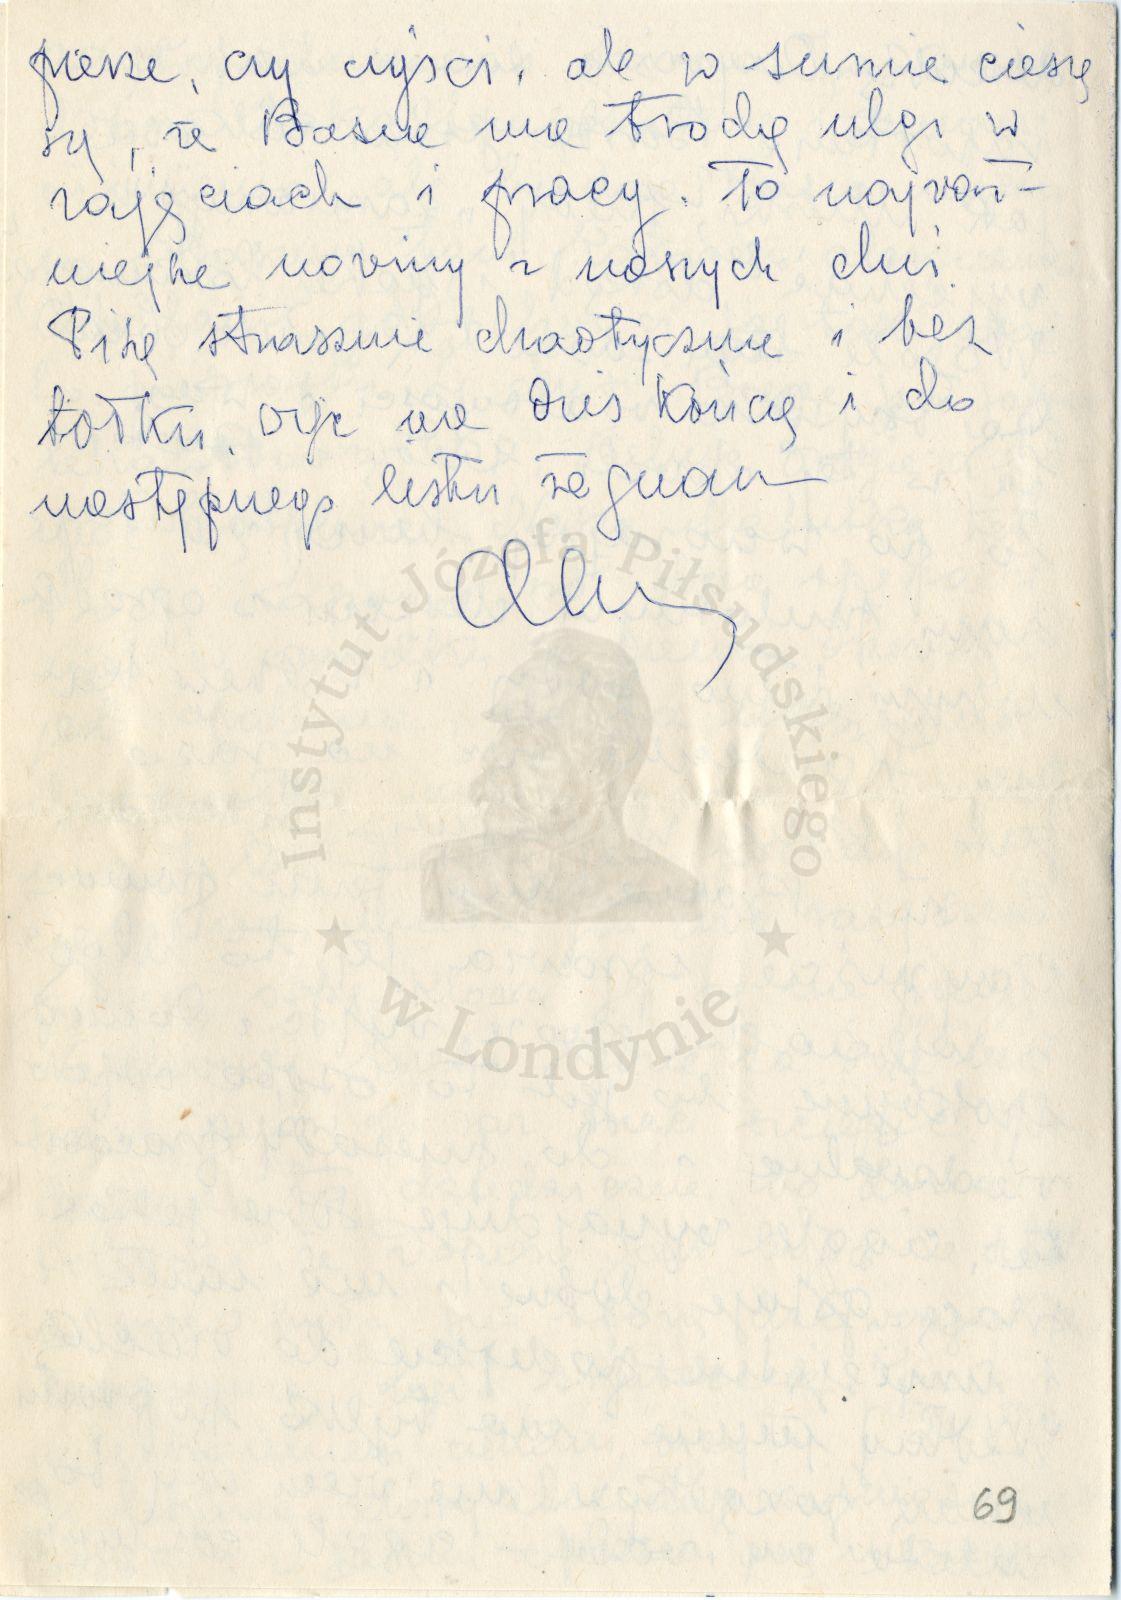 pierze, czy czyści, ale w sumie cieszę
się, że Basia ma trochę ulgi w
zajęciach i pracy. To najważ-
niejsze nowiny z naszych dni.
Piszę strasznie chaotycznie i bez
ładu, więc na dziś kończę i do
następnego listu żegnam
Instytut Józefa Piłsudskiego
w Londynie
69